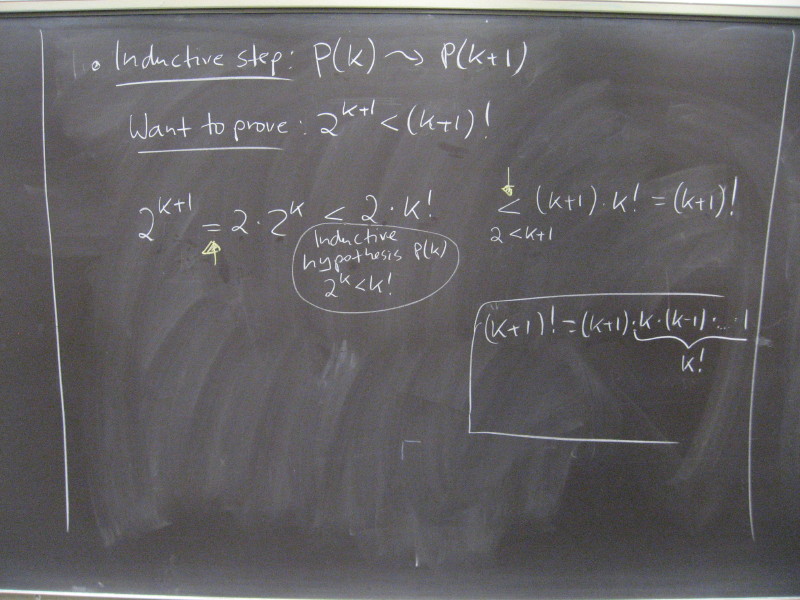 • Inductive step: P(k) ⤳ P(k+1)
Want to prove: 2^{k+1} < (k+1)!
2^{k+1} = 2 · 2^k < 2 · k! < (k+1) · k! = (k+1)!
2 < k+1
Inductive
hypothesis P(k)
2^k < k!
(k+1)! = (k+1) · k · (k-1) · ... · 1
k!